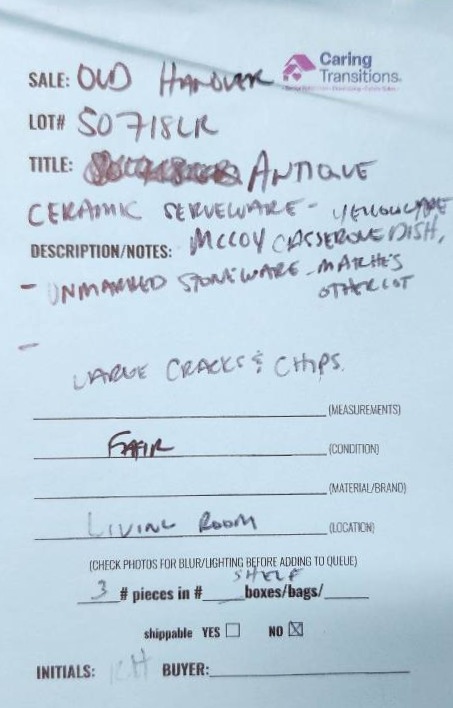 Caring
Transitions.
SALE: OLD HANOVER
LOT# SO718LR
TITLE: ANTIQUE
CERAMIC SERVEWARE - YELLOWWARE
DESCRIPTION/NOTES: MCCOY CASSEROLE DISH,
- UNMARKED STONEWARE - MATCHES
OTHER LOT
-
LARGE CRACKS & CHIPS.
(MEASUREMENTS)
FAIR (CONDITION)
(MATERIAL/BRAND)
LIVING ROOM (LOCATION)
(CHECK PHOTOS FOR BLUR/LIGHTING BEFORE ADDING TO QUEUE)
SHELF
3 # pieces in #____boxes/bags/_____
shippable YES ☐ NO ☒
INITIALS: KH BUYER: